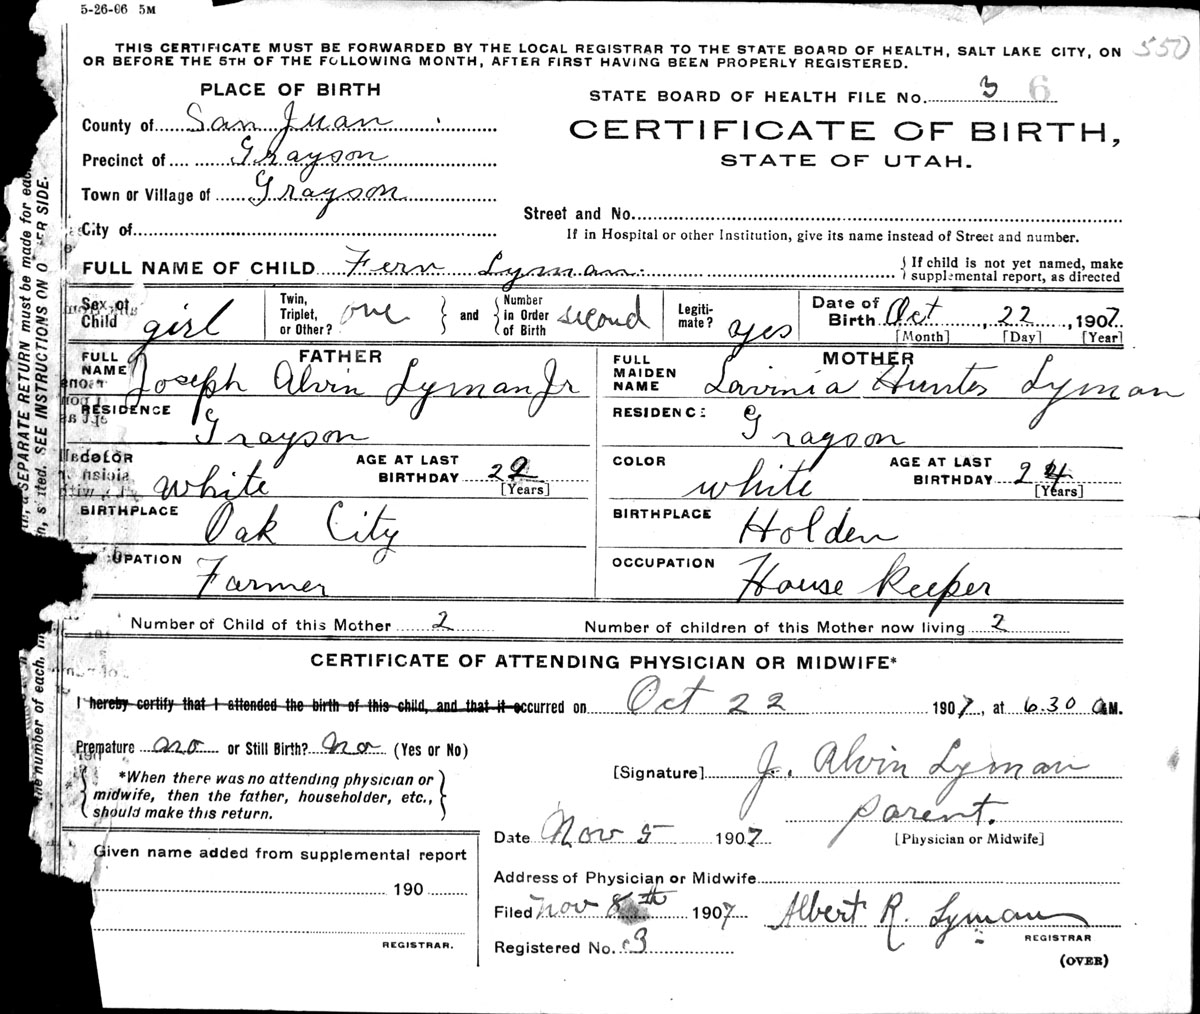 5-26-06 5M
550
THIS CERTIFICATE MUST BE FORWARDED BY THE LOCAL REGISTRAR TO THE STATE BOARD OF HEALTH, SALT LAKE CITY, ON
OR BEFORE THE 5TH OF THE FOLLOWING MONTH, AFTER FIRST HAVING BEEN PROPERLY REGISTERED.
PLACE OF BIRTH
County of San Juan
Precinct of Grayson
Town or Village of Grayson
City of
STATE BOARD OF HEALTH FILE No. 3 6
CERTIFICATE OF BIRTH,
STATE OF UTAH.
Street and No.
If in Hospital or other Institution, give its name instead of Street and number.
FULL NAME OF CHILD Fern Lyman
If child is not yet named, make
supplemental report, as directed
Sex of Child girl
Twin, Triplet, or Other? one and Number in Order of Birth second
Legitimate? yes
Date of Birth Oct 22, 1907
[Month] [Day] [Year]
FATHER
FULL NAME Joseph Alvin Lyman Jr
RESIDENCE
Grayson
COLOR white
AGE AT LAST BIRTHDAY 22
[Years]
BIRTHPLACE
Oak City
UPATION
Farmer
MOTHER
FULL MAIDEN NAME Lavinia Hunter Lyman
RESIDENCE
Grayson
COLOR white
AGE AT LAST BIRTHDAY 24
[Years]
BIRTHPLACE
Holden
OCCUPATION
House Keeper
Number of Child of this Mother 2
Number of children of this Mother now living 2
CERTIFICATE OF ATTENDING PHYSICIAN OR MIDWIFE*
I hereby certify that I attended the birth of this child, and that it occurred on Oct 22 1907, at 6.30 a M.
Premature no or Still Birth? No (Yes or No)
*When there was no attending physician or
midwife, then the father, householder, etc.,
should make this return.
[Signature] J. Alvin Lyman
parent.
[Physician or Midwife]
Date Nov 5 1907
Given name added from supplemental report
190
REGISTRAR.
Address of Physician or Midwife
Filed Nov 8th 1907 Albert R. Lyman
REGISTRAR
Registered No. 3
(OVER)
SEPARATE RETURN must be made for each
SEE INSTRUCTIONS ON
ER SIDE.
the number of each,